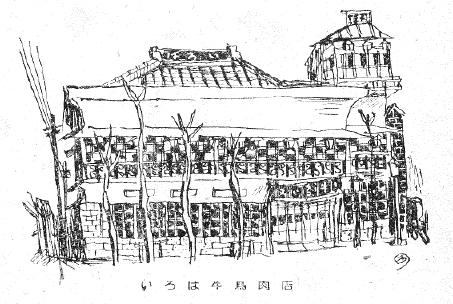 いろは牛鳥肉店